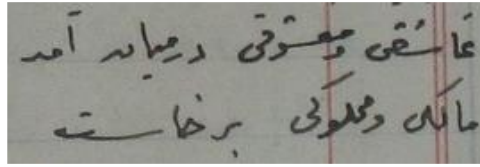 عاشقی و معشوقی درمیان آمد
مالکی و مملوکی برخاست